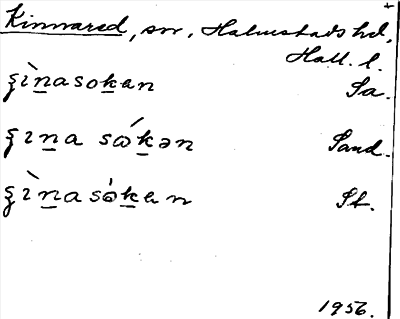 Kinnared, sn, Halmstads hd,
Hall. l.
ʒı̀n̲asok̲en Sa.
ʒın̲a sɷ́k̲ən Sand.
ʒı̀n̲asɷ̀k̲en St.
1956.